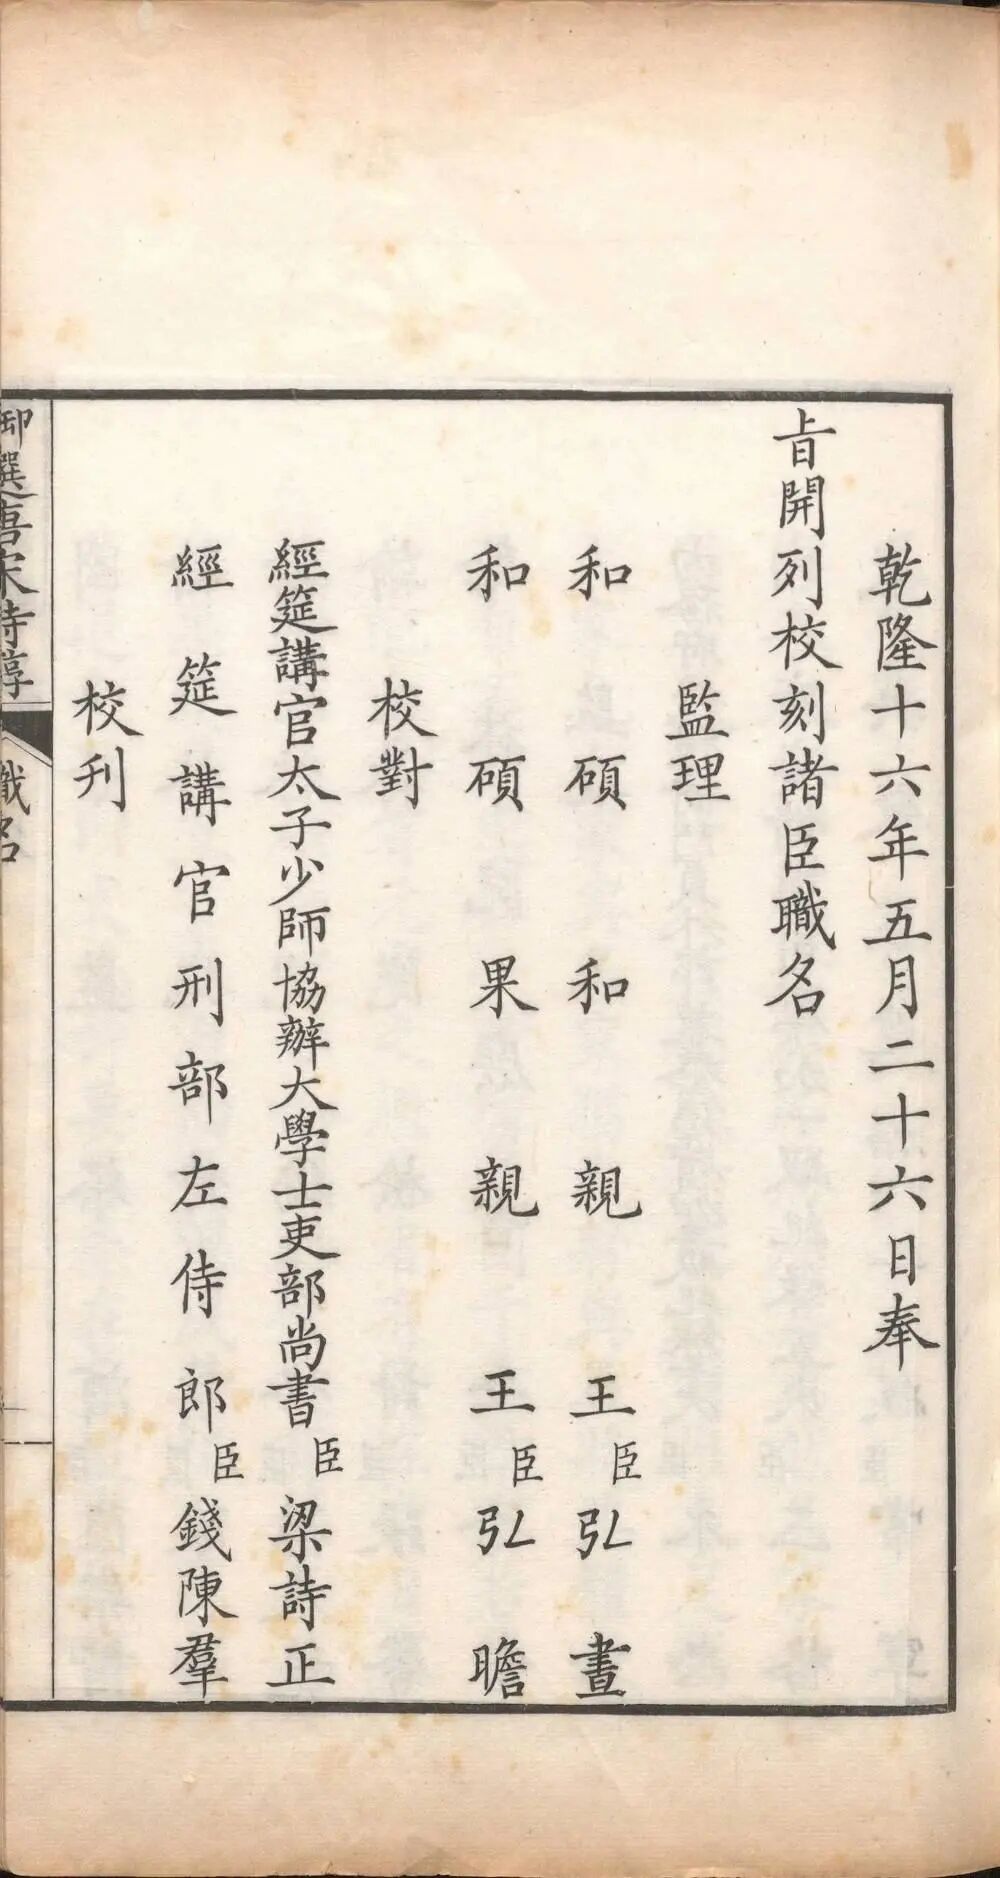 乾隆十六年五月二十六日奉
旨開列校刻諸臣職名
監理
和碩和親王臣弘晝
和碩果親王臣弘瞻
校對
經筵講官太子少師協辦大學士吏部尚書臣梁詩正
經筵講官刑部左侍郎臣錢陳羣
校刊
御選唐宋詩醇 職名